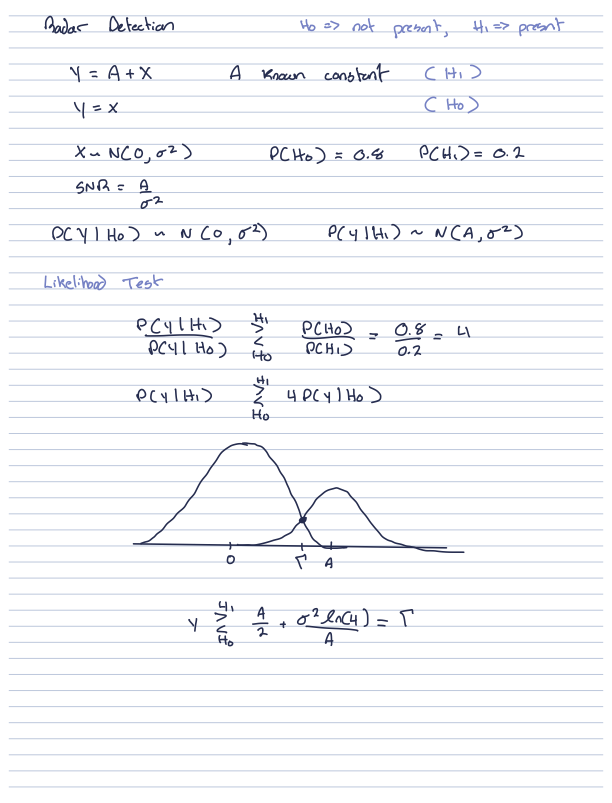 Radar Detection H0 => not present, H1 => present
Y = A + X A known constant (H1)
Y = x (H0)
X ~ N(0, σ²) P(H0) = 0.8 P(H1) = 0.2
SNR = A/σ²
P(Y|H0) ~ N(0, σ²) P(Y|H1) ~ N(A, σ²)
Likelihood Test
P(Y|H1)/P(Y|H0) ≷ H1 H0 P(H0)/P(H1) = 0.8/0.2 = 4
P(Y|H1) ≷ H1 H0 4P(Y|H0)
0 Γ A
Y ≷ H1 H0 A/2 + σ² ln(4)/A = Γ